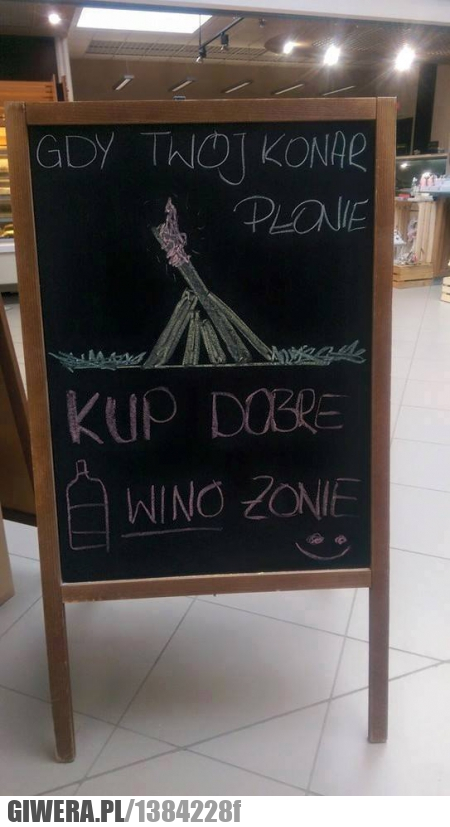 GDY TWÓJ KONAR
PŁONIE
KUP DOBRE
WINO ŻONIE
GIWERA.PL/1384228f